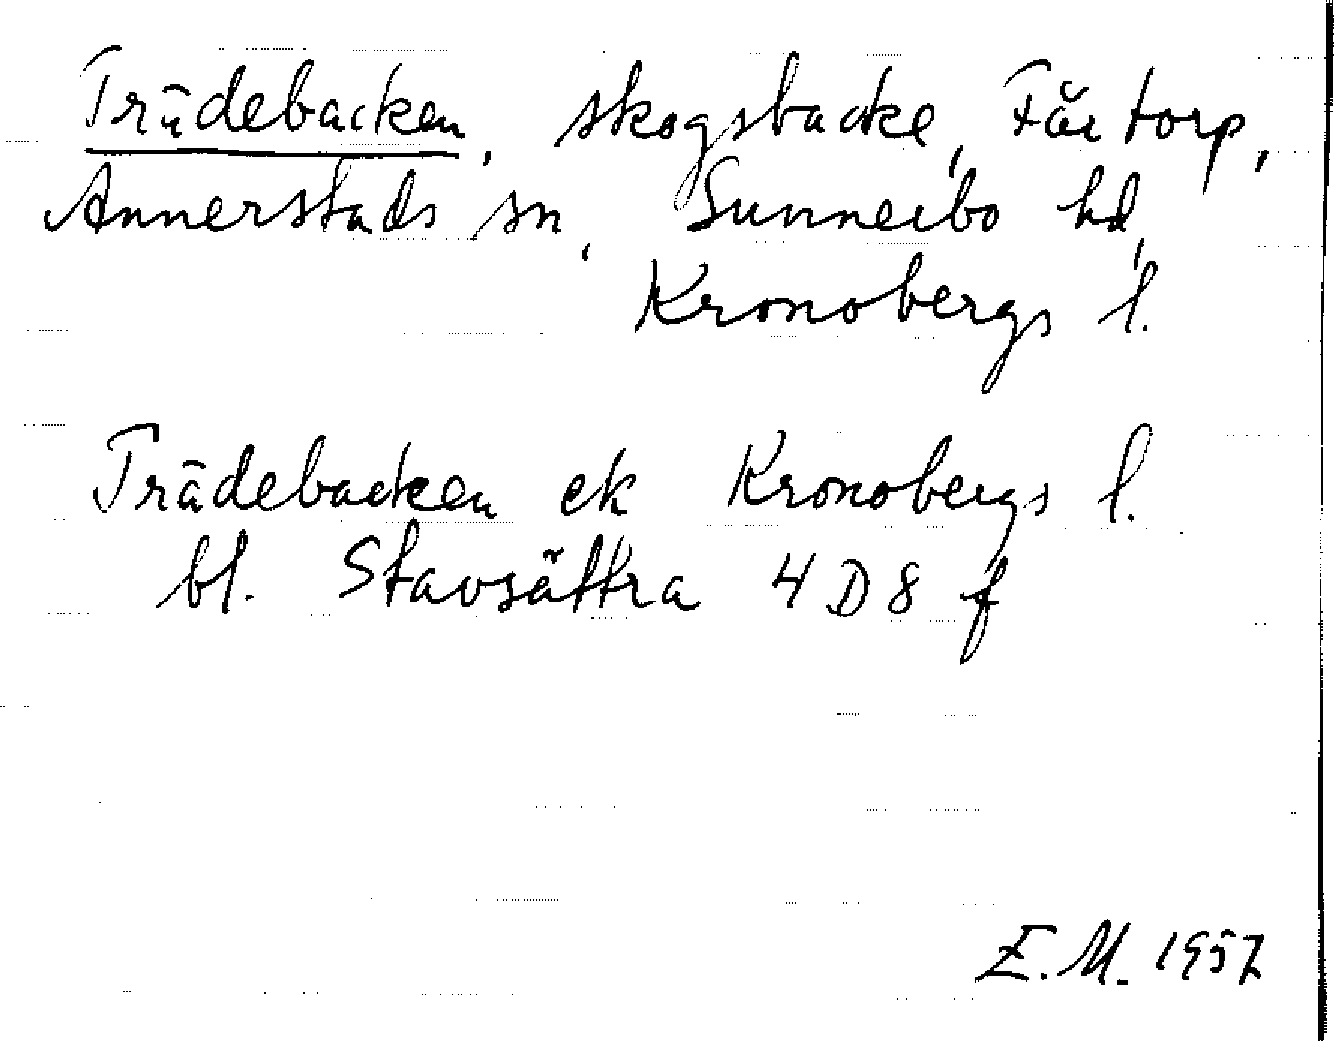 Trädebacken, skogsbacke, Fårtorp,
Annerstads sn, Sunnerbo hd,
Kronobergs l.
Trädebacken ek Kronobergs l.
bl. Stavsättra 4 D 8 f
E.M. 1957